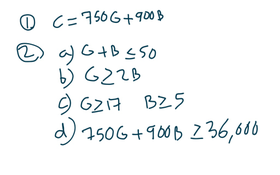 ① C = 750G+900B
② a) G+B ≤ 50
b) G ≥ 2B
c) G ≥ 17 B ≥ 5
d) 750G+900B ≥ 36,000